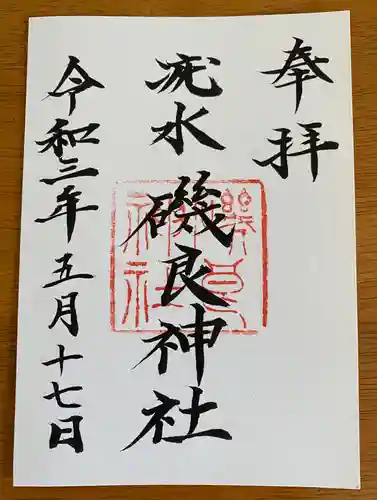 奉拝
疣水磯良神社
令和三年五月十七日